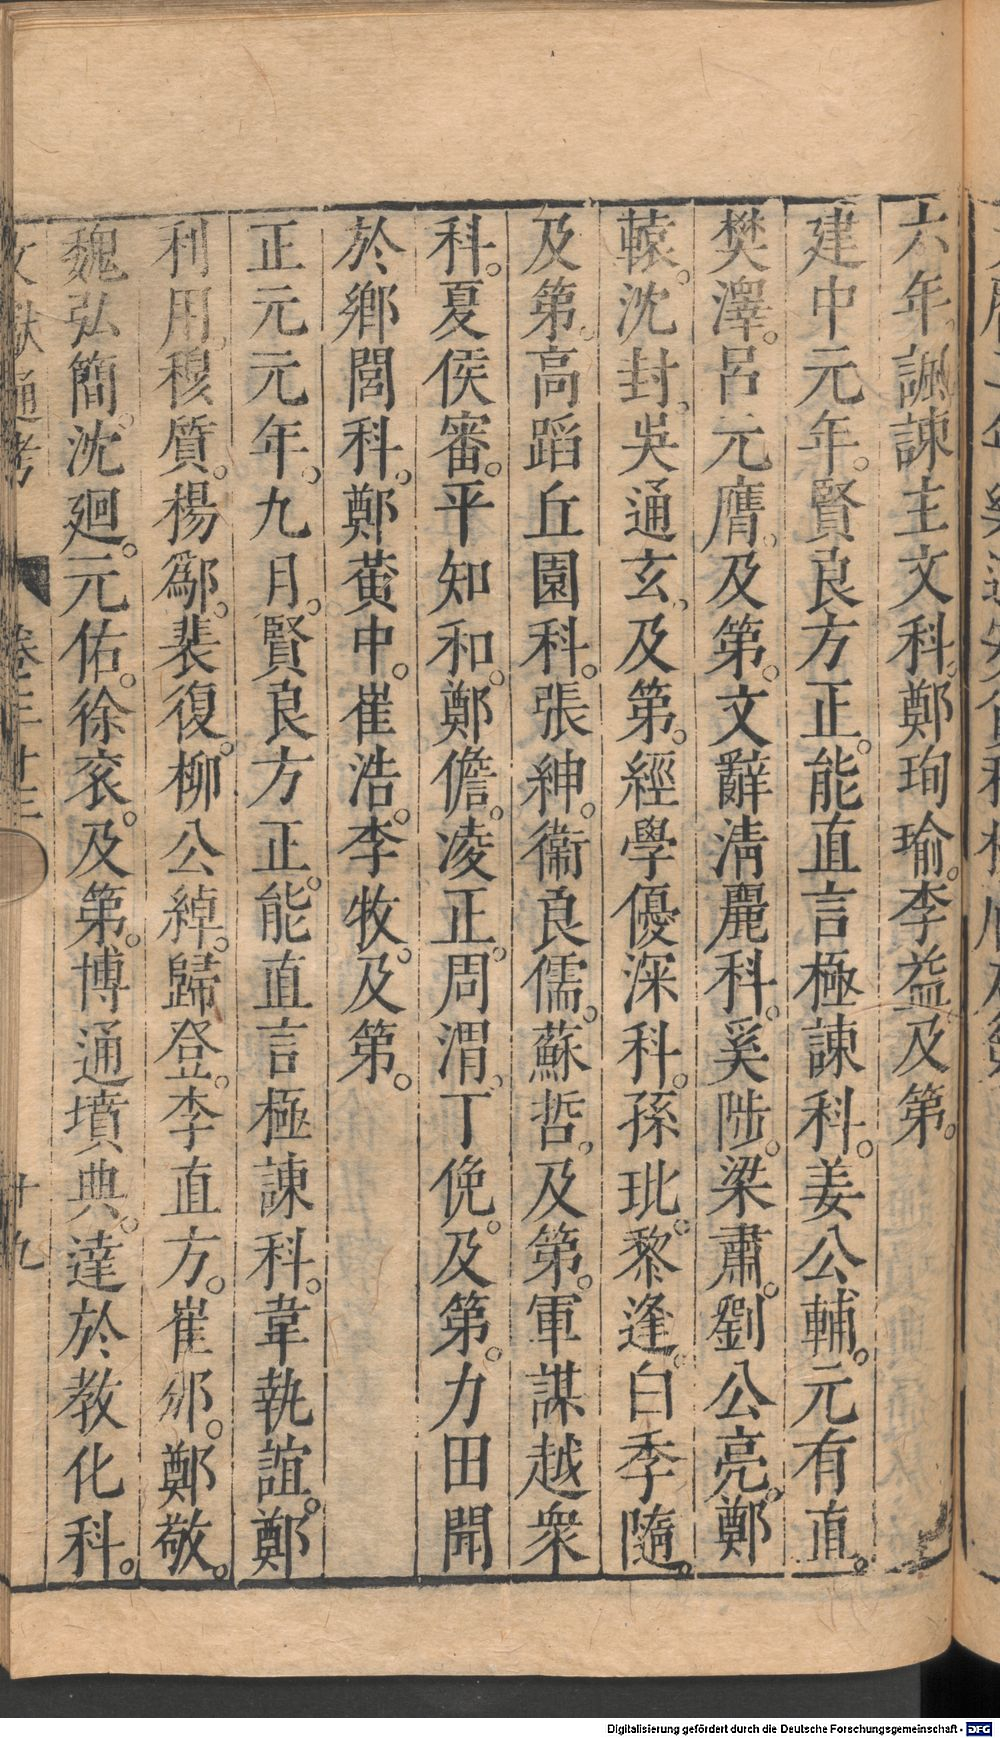 六年。諷諫主文科。鄭珣瑜。李益及第。
建中元年。賢良方正。能直言極諫科。姜公輔。元有直。
樊澤。呂元膺。及第。文辭淸麗科。奚陟。梁肅。劉公亮。鄭
轅。沈封。吳通玄。及第。經學優深科。孫玭。黎逢。白季隨。
及第。高蹈丘園科。張紳。衞良儒。蘇哲。及第。軍謀越衆
科。夏侯審。平知和。鄭儋。凌正。周渭。丁俛。及第。力田聞
於鄉閭科。鄭黃中。崔浩。李牧。及第。
正元元年。九月。賢良方正。能直言極諫科。韋執誼。鄭
利用。穆質。楊鄬。裴復。柳公綽。歸登。李直方。崔邠。鄭敬。
魏弘簡。沈廻。元佑。徐袞。及第。博通墳典。達於教化科。
文獻通考 卷三十三 十九
Digitalisierung gefördert durch die Deutsche Forschungsgemeinschaft - DFG